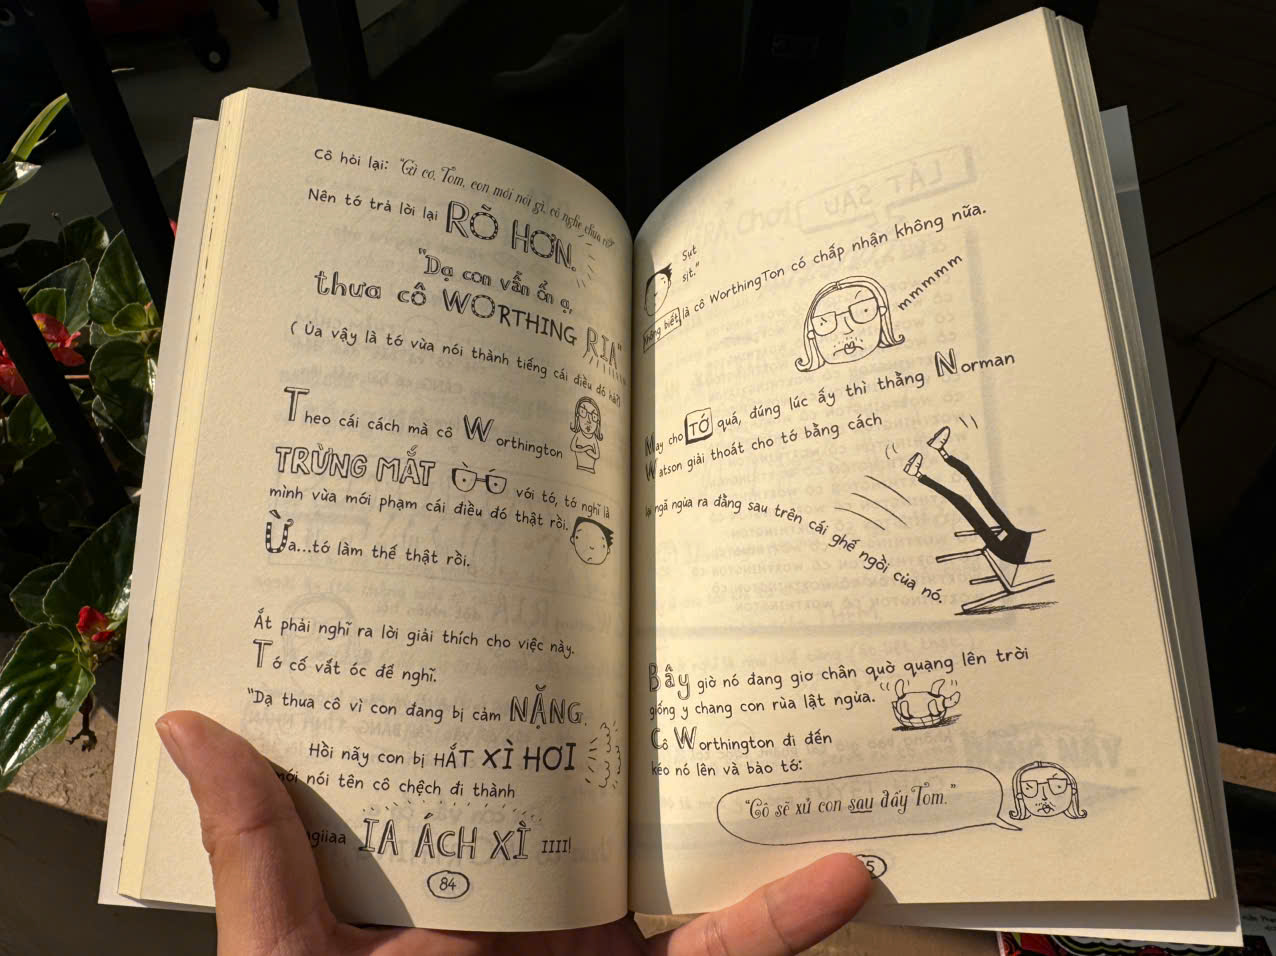 Cô hỏi lại: "Gì cơ, Tom, con mới nói gì, cô nghe chưa rõ
Nên tớ trả lời lại RÕ HƠN.
"Dạ con vẫn ổn ạ,
thưa cô WORTHING RIA"
( Ủa vậy là tớ vừa nói thành tiếng cái điều đó hả?)
Theo cái cách mà cô Worthington
TRỪNG MẮT với tớ, tớ nghĩ là
mình vừa mới phạm cái điều đó thật rồi.
Ừa...tớ làm thế thật rồi.
Ắt phải nghĩ ra lời giải thích cho việc này.
Tớ cố vắt óc để nghĩ.
"Dạ thưa cô vì con đang bị cảm NẶNG.
Hồi nãy con bị HẮT XÌ HƠI
nói tên cô chệch đi thành
IA ÁCH XÌ IIII!
84
Sụt
sịt."
Không biết là cô WorthingTon có chấp nhận không nữa.
mmmmm
May cho TỚ quá, đúng lúc ấy thì thằng Norman
Watson giải thoát cho tớ bằng cách
ngã ngửa ra đằng sau trên cái ghế ngồi của nó.
Bây giờ nó đang giơ chân quờ quạng lên trời
giống y chang con rùa lật ngửa.
Cô Worthington đi đến
kéo nó lên và bảo tớ:
"Cô sẽ xử con sau đấy Tom."
5